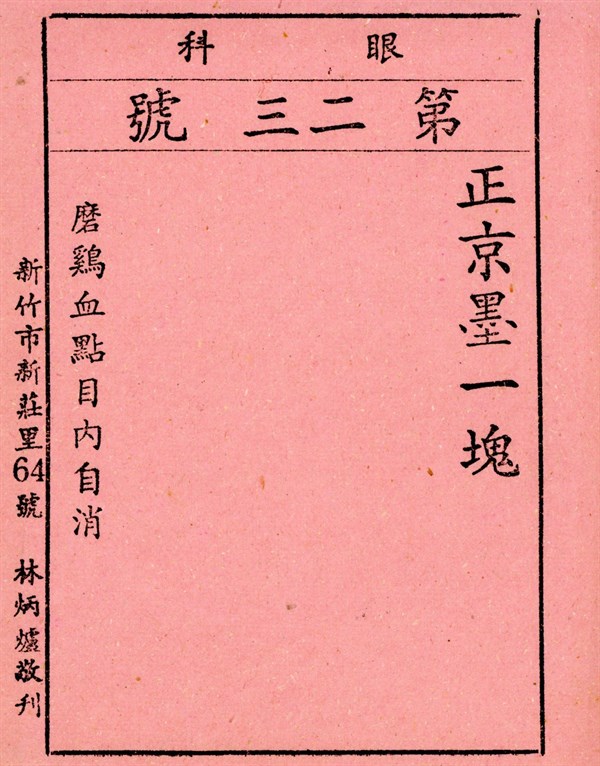 眼科
第二三號
正京墨一塊
磨鷄血點目內自消
新竹市新莊里64號 林炳爐敬刋